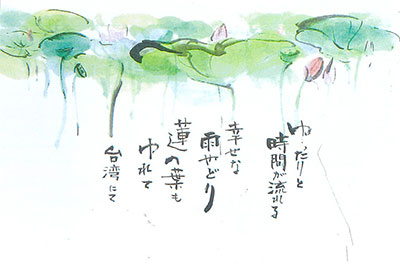 ゆったりと
時間が流れる
幸せな
雨やどり
蓮の葉も
ゆれて
台湾にて